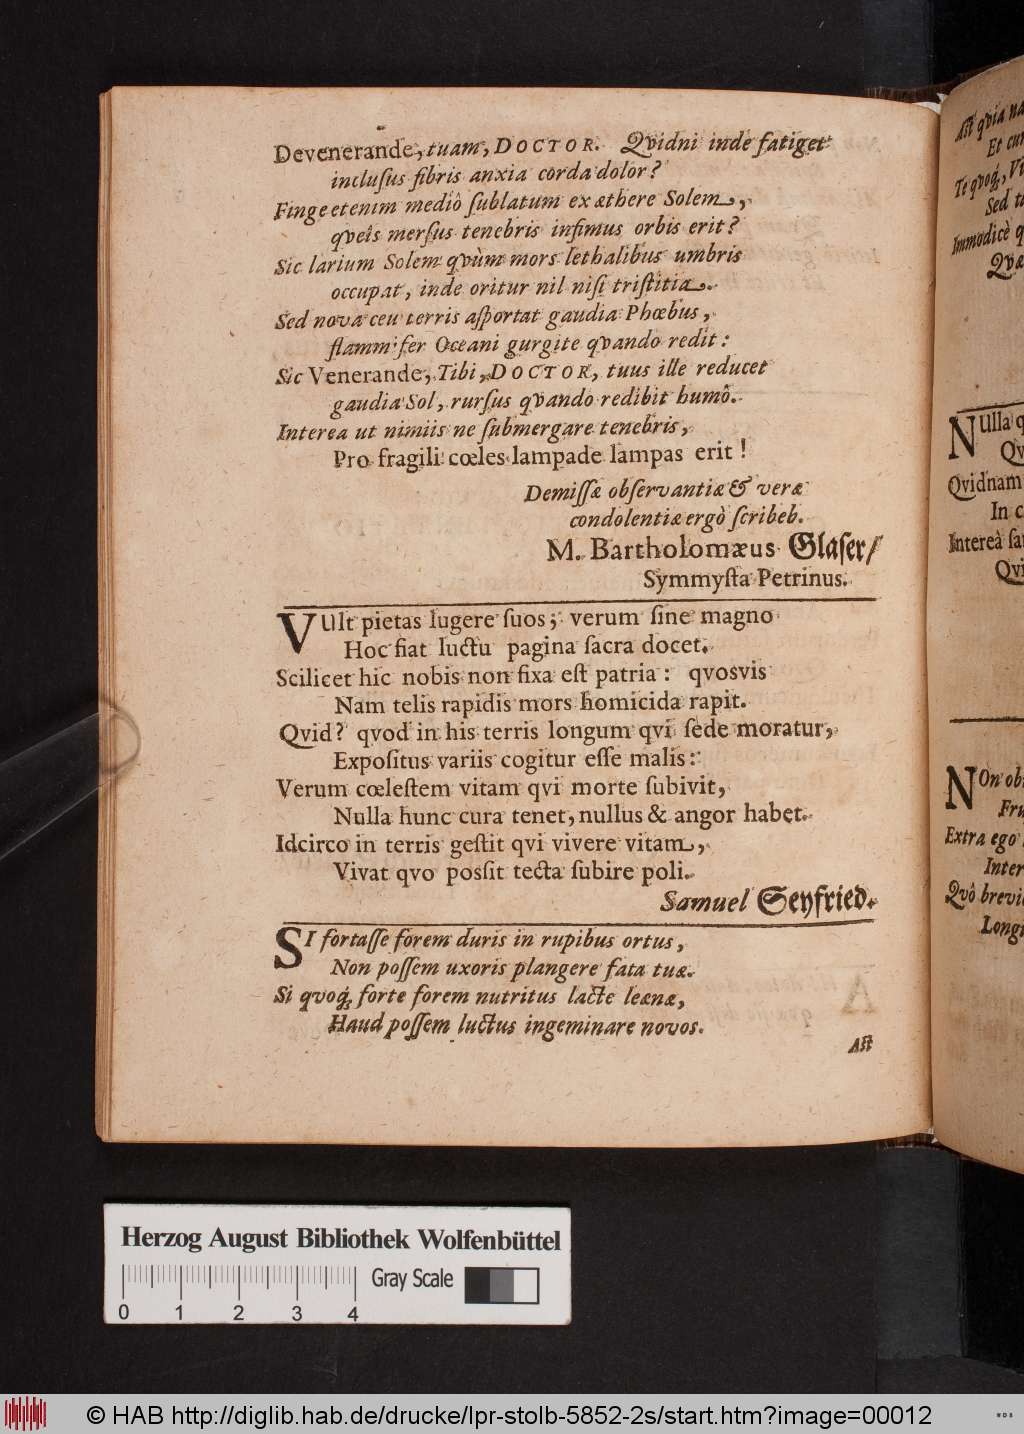 Devenerande, tuam, DOCTOR. Qvidni inde fatiget
incluſus fibris anxia corda dolor?
Finge etenim mediô ſublatum ex æthere Solem,
qveîs merſus tenebris infimus orbis erit?
Sic larium Solem qvùm mors lethalibus umbris
occupat, inde oritur nil niſi triſtitia.
Sed nova ceu terris aſportat gaudia Phœbus,
flammifer Oceani gurgite qvando redit:
Sic Venerande, Tibi, DOCTOR, tuus ille reducet
gaudia Sol, rurſus qvando redibit humô.
Interea ut nimiis ne ſubmergare tenebris,
Pro fragili cœles lampade lampas erit!
Demiſſæ obſervantiæ & veræ
condolentiæ ergò ſcribeb.
M. Bartholomæus Glaſer/
Symmyſta Petrinus.
VUlt pietas lugere ſuos; verum ſine magno
Hoc fiat luctu pagina ſacra docet.
Scilicet hic nobis non fixa eſt patria: qvosvis
Nam telis rapidis mors homicida rapit.
Qvid? qvod in his terris longum qvi ſede moratur,
Expoſitus variis cogitur eſſe malis:
Verum cœleſtem vitam qvi morte ſubivit,
Nulla hunc cura tenet, nullus & angor habet.
Idcirco in terris geſtit qvi vivere vitam,
Vivat qvo posſit tecta ſubire poli.
Samuel Seyfried.
SI fortaſſe forem duris in rupibus ortus,
Non poſſem uxoris plangere fata tuæ.
Si qvoq́; forte forem nutritus lacte leænæ,
Haud poſſem luctus ingeminare novos.
Aſt
Aſt qvia
Et
Te qvoq́;,
Sed
Immodicè
NUlla
Qvidnam
In
Intereà
NOn
Extra ego
Qvô
Herzog August Bibliothek Wolfenbüttel
Gray Scale
0 1 2 3 4
© HAB http://diglib.hab.de/drucke/lpr-stolb-5852-2s/start.htm?image=00012